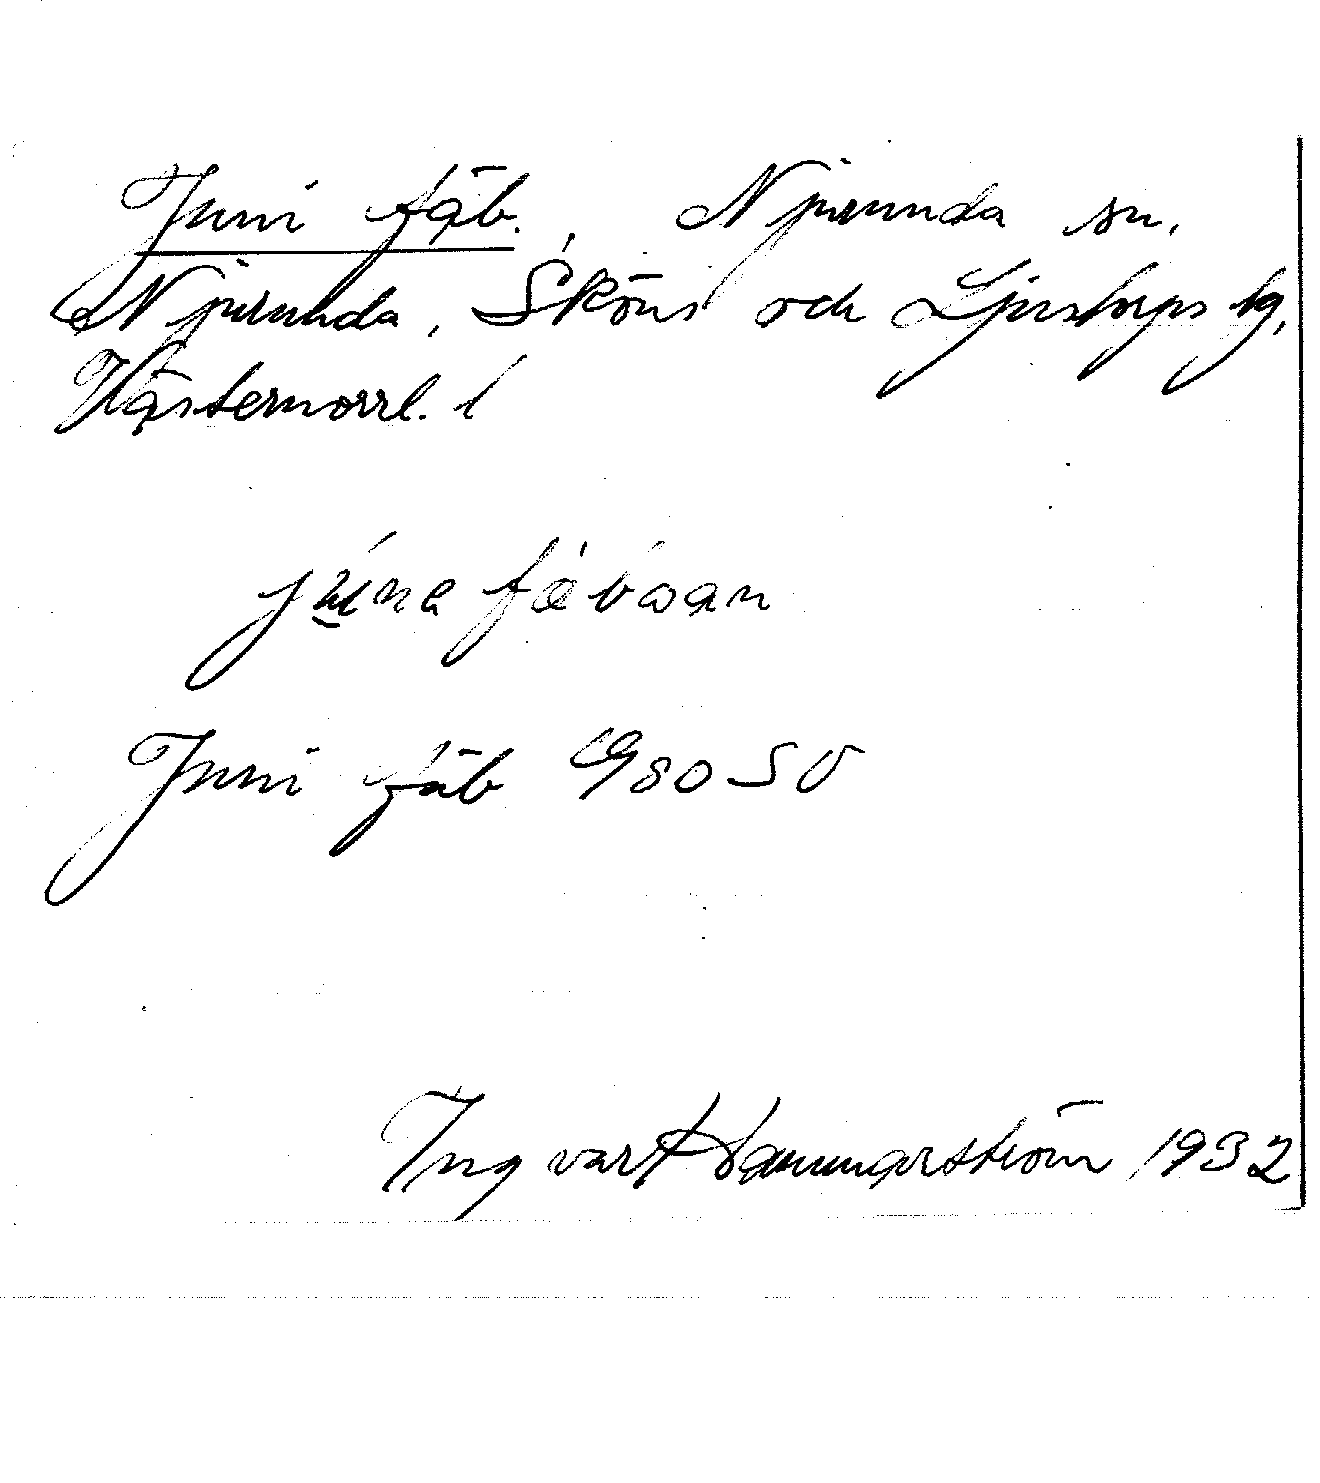 Juni fäb., Njurunda sn,
Njurunda, Sköns och Ljustorps tg,
Västernorrl. l
Juni fäb G80 SV
Ingvar Hammarström 1932